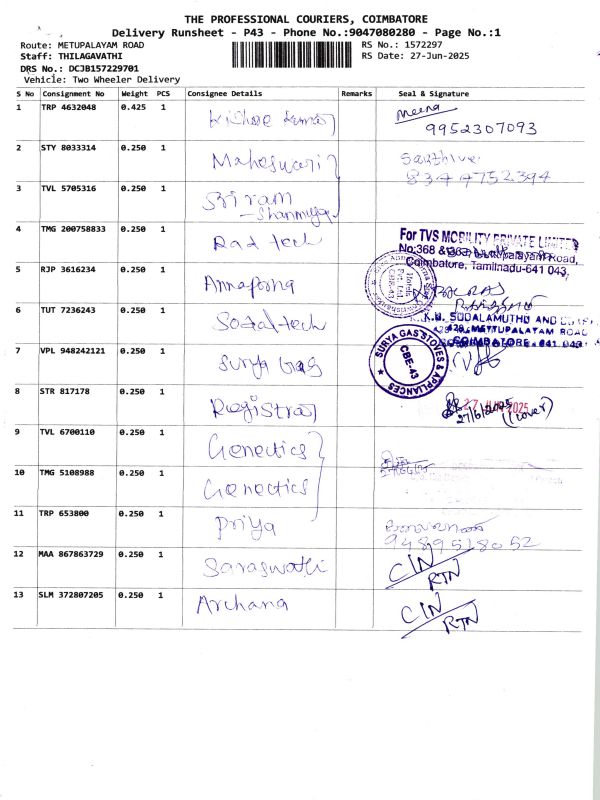 THE PROFESSIONAL COURIERS, COIMBATORE
Delivery Runsheet - P43 - Phone No.:9047080280 - Page No.:1
Route: METUPALAYAM ROAD RS No.: 1572297
Staff: THILAGAVATHI RS Date: 27-Jun-2025
DRS No.: DCJB157229701
Vehicle: Two Wheeler Delivery
S No Consignment No Weight PCS Consignee Details Remarks Seal & Signature
1 TRP 4632048 0.425 1 Kishore Kumar Meena
9952307093
2 STY 8033314 0.250 1 Maheswari
8344752394
3 TVL 5705316 0.250 1 Sriram
- Shanmuga
4 TMG 200758833 0.250 1 Rad tech For TVS MOBILITY PRIVATE LIMITED
No:368 Mettupalayam Road,
Coimbatore, Tamilnadu-641 043.
5 RJP 3616234 0.250 1 Annapoorna
6 TUT 7236243 0.250 1 tech SUDALAMUTHU AND
METTUPALAYAM ROAD
COIMBATORE - 641 043
7 VPL 948242121 0.250 1 Surya Gas SURYA GAS STOVES & APPLIANCES
CBE-43
8 STR 817178 0.250 1 Registrar 27 JUN 2025
27/6/2025 (cover)
9 TVL 6700110 0.250 1 Genetics
10 TMG 5108988 0.250 1 Genetics
11 TRP 653800 0.250 1 Priya
9489518052
12 MAA 867863729 0.250 1 Saraswathi CIN
RTN
13 SLM 372807205 0.250 1 Archana CIN
RTN